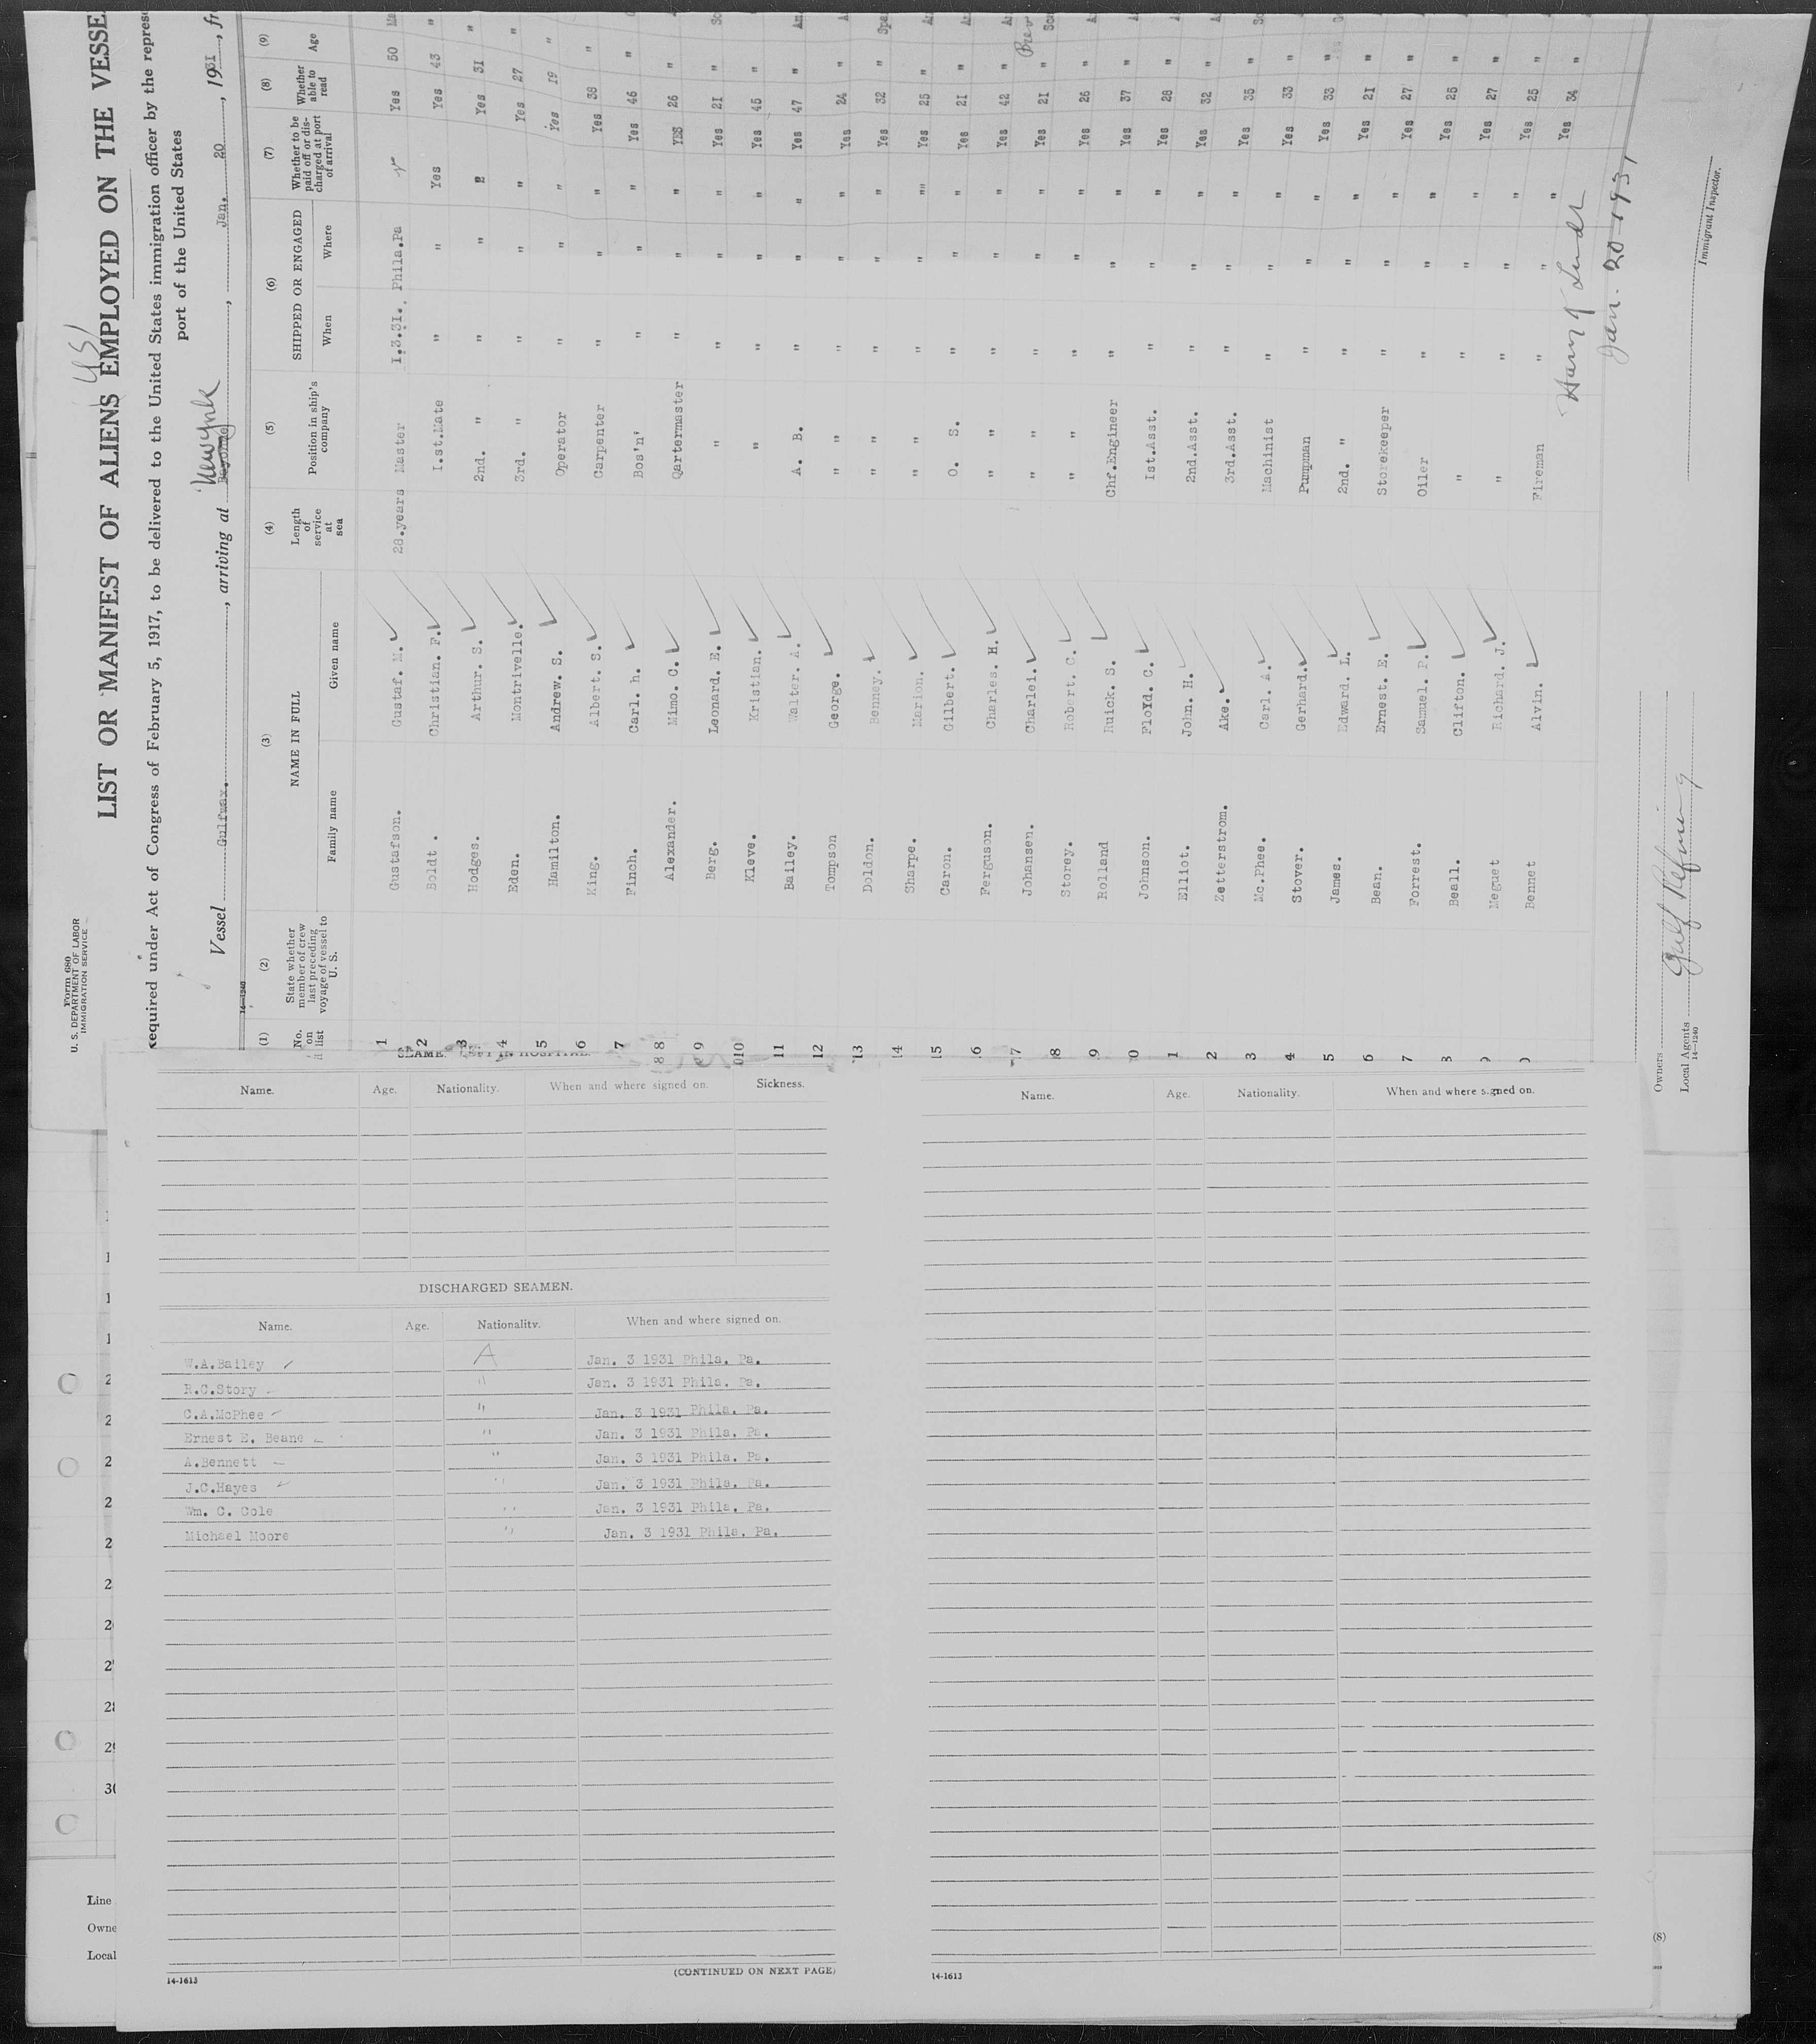 Form 680
U. S. DEPARTMENT OF LABOR
IMMIGRATION SERVICE
LIST OR MANIFEST OF ALIENS EMPLOYED ON THE VESSE
equired under Act of Congress of February 5, 1917, to be delivered to the United States immigration officer by the represe
port of the United States
Vessel Gulfwax. , arriving at New York , Jan. 20 , 1931, fr
14—1240
(1) No. on list (2) State whether member of crew last preceding voyage of vessel to U. S. (3) NAME IN FULL Family name Given name (4) Length of service at sea (5) Position in ship's company (6) SHIPPED OR ENGAGED When Where (7) Whether to be paid off or discharged at port of arrival (8) Whether able to read (9) Age
1 Gustafson. Gustaf. M. 28.years Master 1.3.31. Phila.Pa Yes 50
2 Boldt . Christian. F. I.st.Mate " " Yes Yes 43 "
3 Hodges. Arthur. S. 2nd. " " " " Yes 31 "
4 Eden. Montrivelle. 3rd. " " " " Yes 27 "
5 Hamilton. Andrew. S. Operator " " " Yes 19 "
6 King. Albert. S. Carpenter " " " Yes 38 "
7 Finch. Carl. h. Bos'n' " " " Yes 46 "
8 Alexander. Mimo. C. Qartermaster " " " YES 26 "
9 Berg. Leonard. E. " " " " Yes 21 "
10 Kleve. Kristian. " " " " Yes 45 "
11 Bailey. Walter. A. A. B. " " " Yes 47 "
12 Tompson George. " " " " Yes 24 "
13 Doldon. Benney. " " " " Yes 32 "
14 Sharpe. Marion. " " " " Yes 25 "
15 Caron. Gilbert. O. S. " " " Yes 21 "
16 Ferguson. Charles. H. " " " " Yes 42 "
17 Johansen. Charlei. " " " " Yes 21 "
8 Storey. Robert. C. " " " " Yes 26 "
9 Rolland Ruick. S. Chf.Engineer " " " Yes 37 "
0 Johnson. FloYd. C. Ist.Asst. " " " Yes 28 "
1 Elliot. John. H. 2nd.Asst. " " " Yes 32 "
2 Zetterstrom. Ake. 3rd.Asst. " " " Yes 35 "
3 Mc.Phee. Carl. A. Machinist " " " Yes 33 "
4 Stover. Gerhard. Pumpman " " " Yes 33 "
5 James. Edward. L. 2nd. " " " " Yes 21 "
6 Bean. Ernest. E. Storekeeper " " " Yes 27 "
7 Forrest. Samuel. P. Oiler " " " Yes 25 "
8 Beall. Clifton. " " " " Yes 27 "
9 Meguet Richard. J. " " " " Yes 25 "
0 Bennet Alvin. Fireman " " " Yes 34 "
Jan. 20 1931
Immigrant Inspector.
Owners
Local Agents Gulf Refining
14—1240
Name. Age. Nationality. When and where signed on. Sickness.
DISCHARGED SEAMEN.
Name. Age. Nationality. When and where signed on.
W.A.Bailey A Jan. 3 1931 Phila. Pa.
R.C.Story " Jan. 3 1931 Phila. Pa.
C.A.McPhee " Jan. 3 1931 Phila. Pa.
Ernest E. Beane " Jan. 3 1931 Phila. Pa.
A.Bennett " Jan. 3 1931 Phila. Pa.
J.C.Hayes " Jan. 3 1931 Phila. Pa.
Wm. C. Cole " Jan. 3 1931 Phila. Pa.
Michael Moore " Jan. 3 1931 Phila. Pa.
14-1613 (CONTINUED ON NEXT PAGE)
Name. Age. Nationality. When and where signed on.
14-1613
28
29
30
Line
Owne
Local
(8)